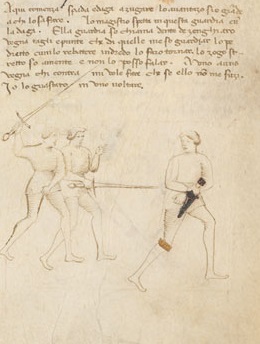 Aqui comenza spada e daga a zugare lo auantazo si e grāde
a chi lo sa fare. Lo magistro spetta in questa guardia cū
la daga. Ella guardia se chiama dente de zenghiaro
vegna tagli e punte che di quelle me so guardar. lo pe
dritto cū lo rebattere indredo lo faro tornar. lo zogo
retto so amente e non lo posso falare. A uno auno
vegna chi contra mi vole fare che se ello nō me fuzi
Io lo guastaro in uno voltare.